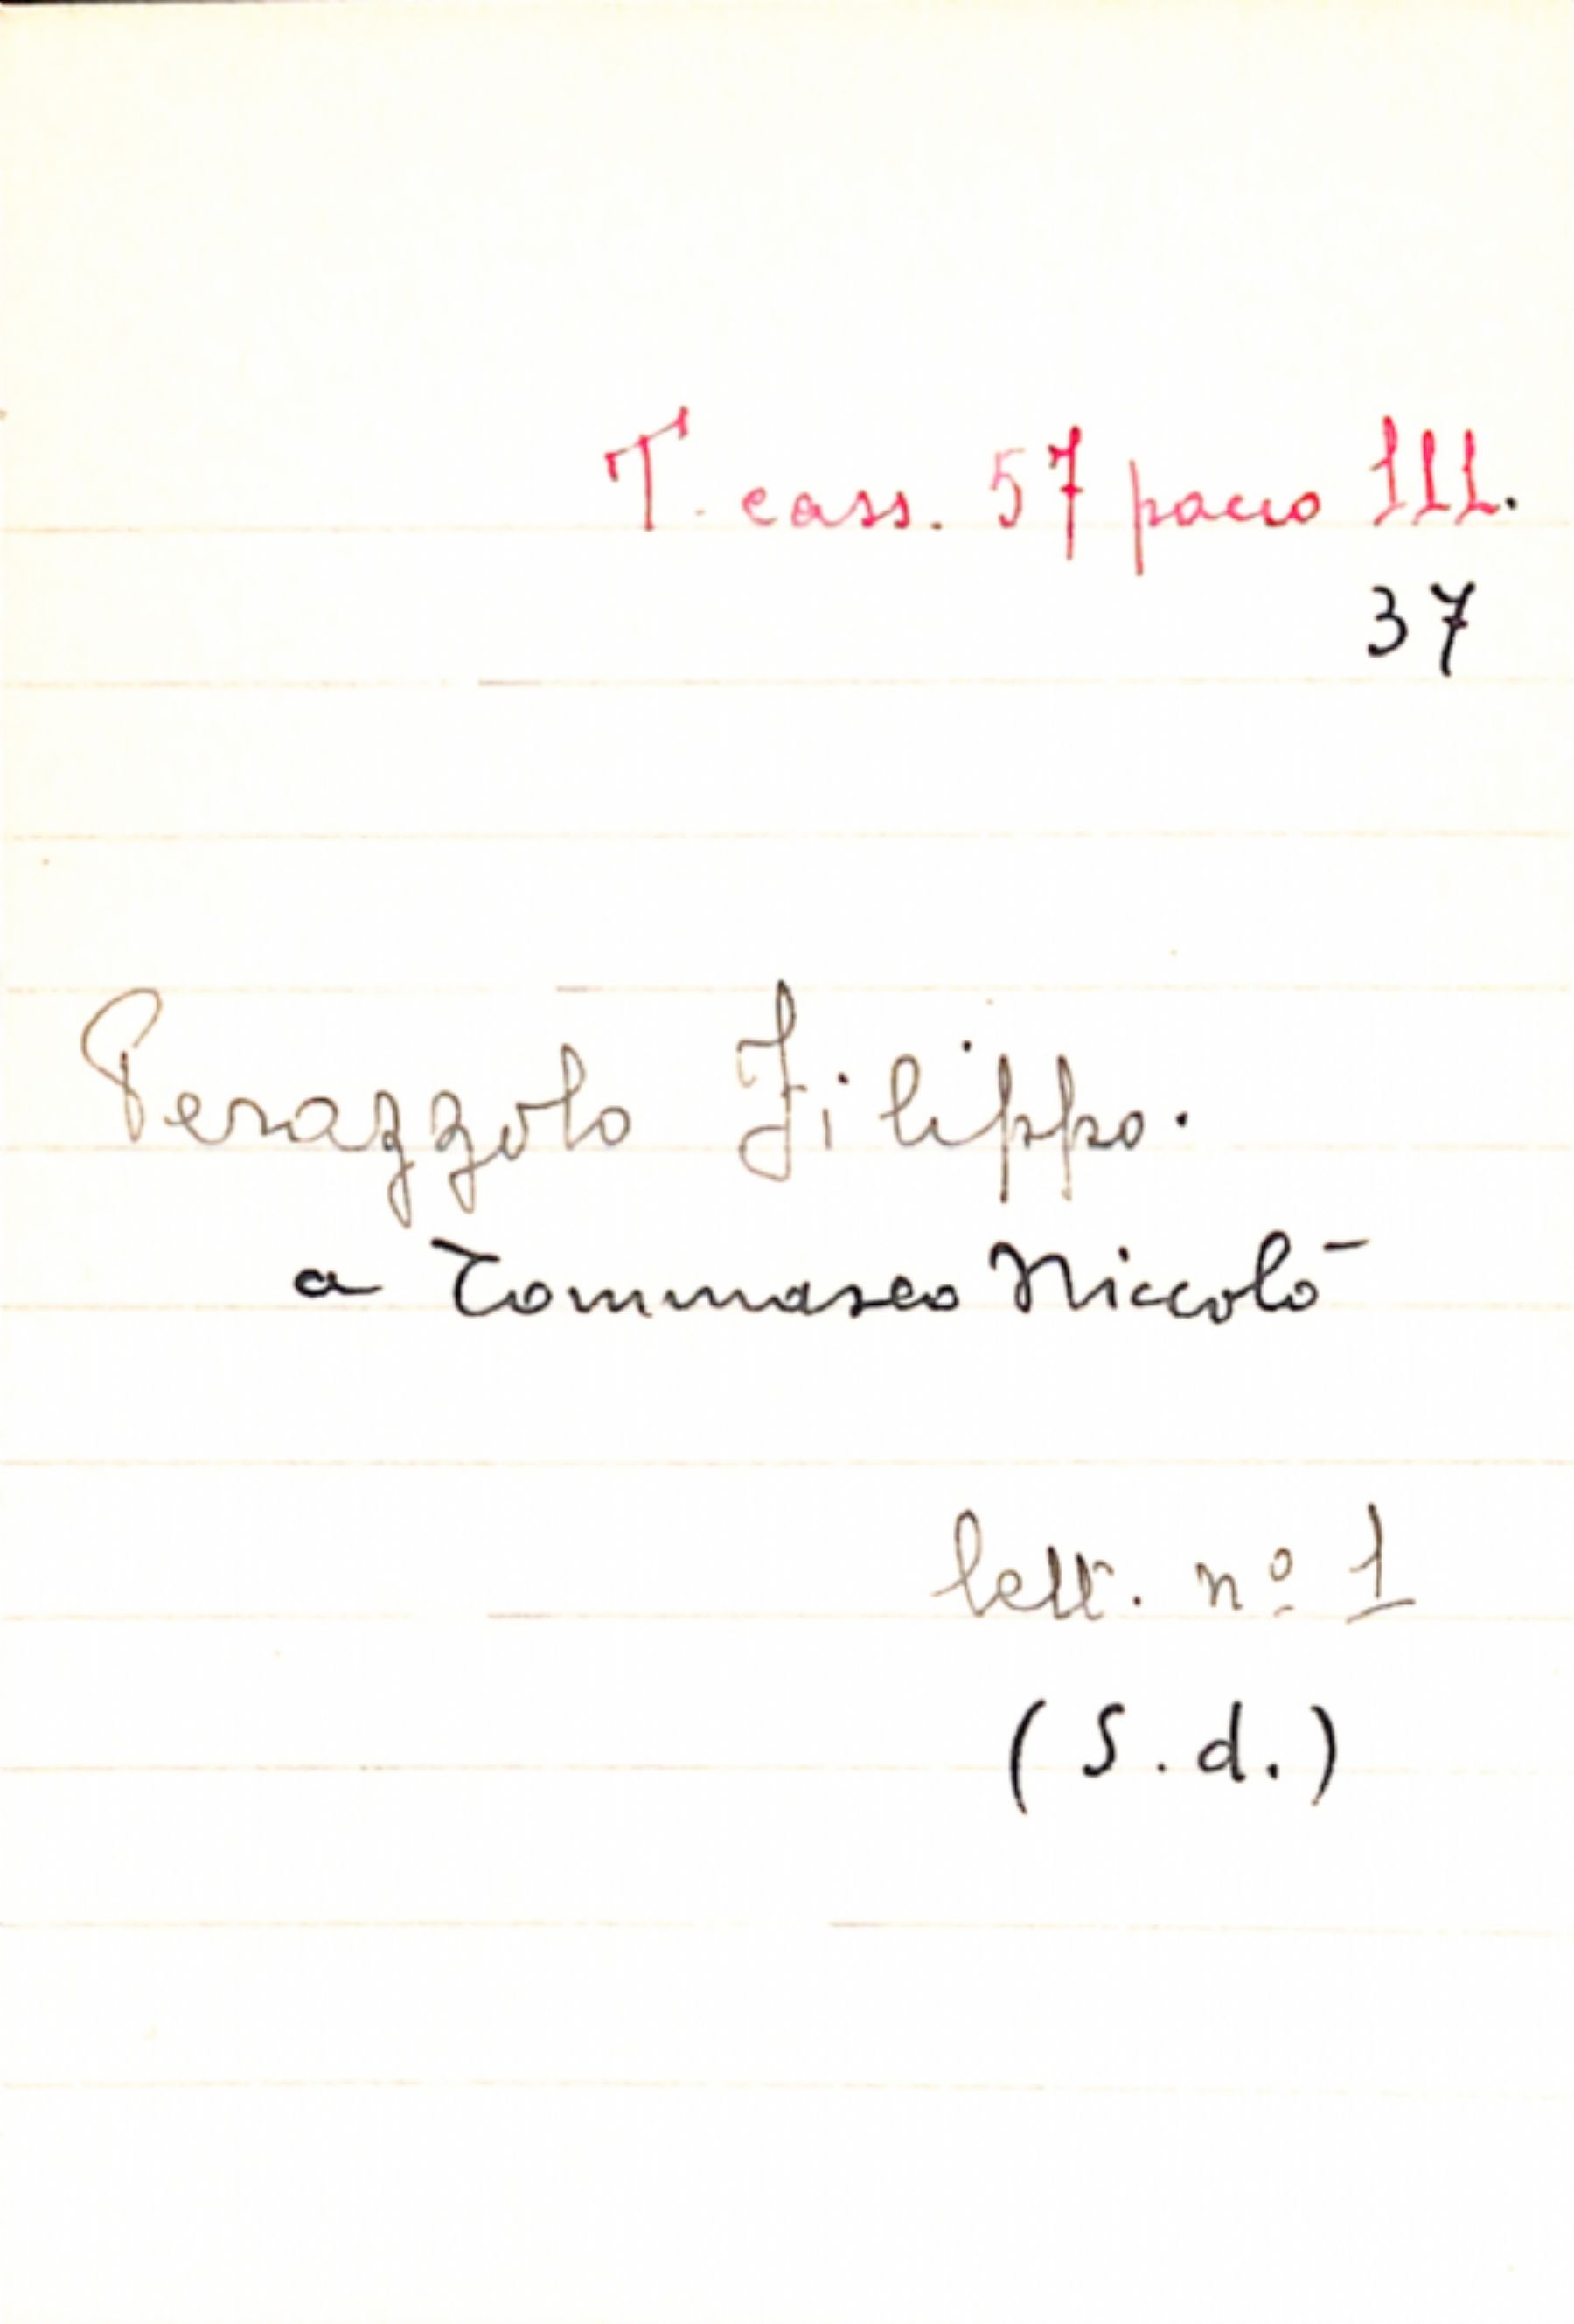 T. cass. 57 pacco III.
37
Perazzolo Filippo.
a Tommaseo Niccolò
lett. nº 1
(S.d.)